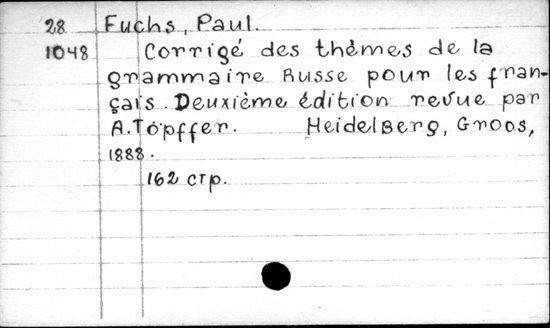 28 Fuchs, Paul.
1048 Corrigé des thèmes de la
grammaire Russe pour les fran-
çais. Deuxième édition revue par
A. Töpffer. Heidelberg, Groos,
1888.
162 стр.